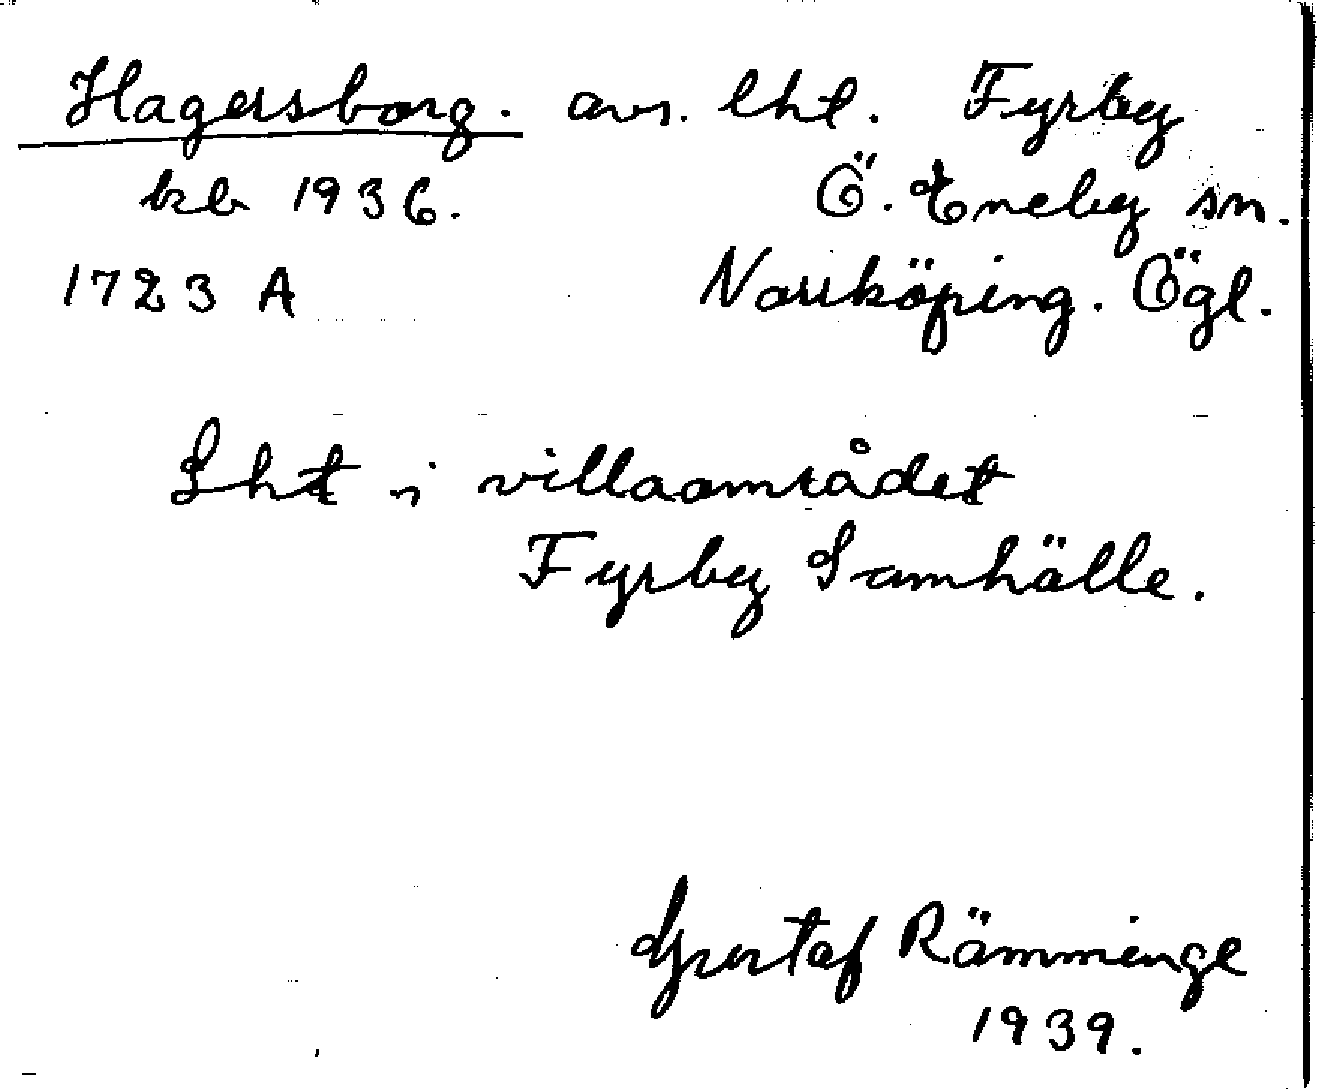 Hagersborg. avs. lht. Fyrby
krb 1936. Ö. Eneby sn.
1723 A Norrköping. Ögl.
Lht i villaområdet
Fyrby Samhälle.
Gustaf Rämminge
1939.